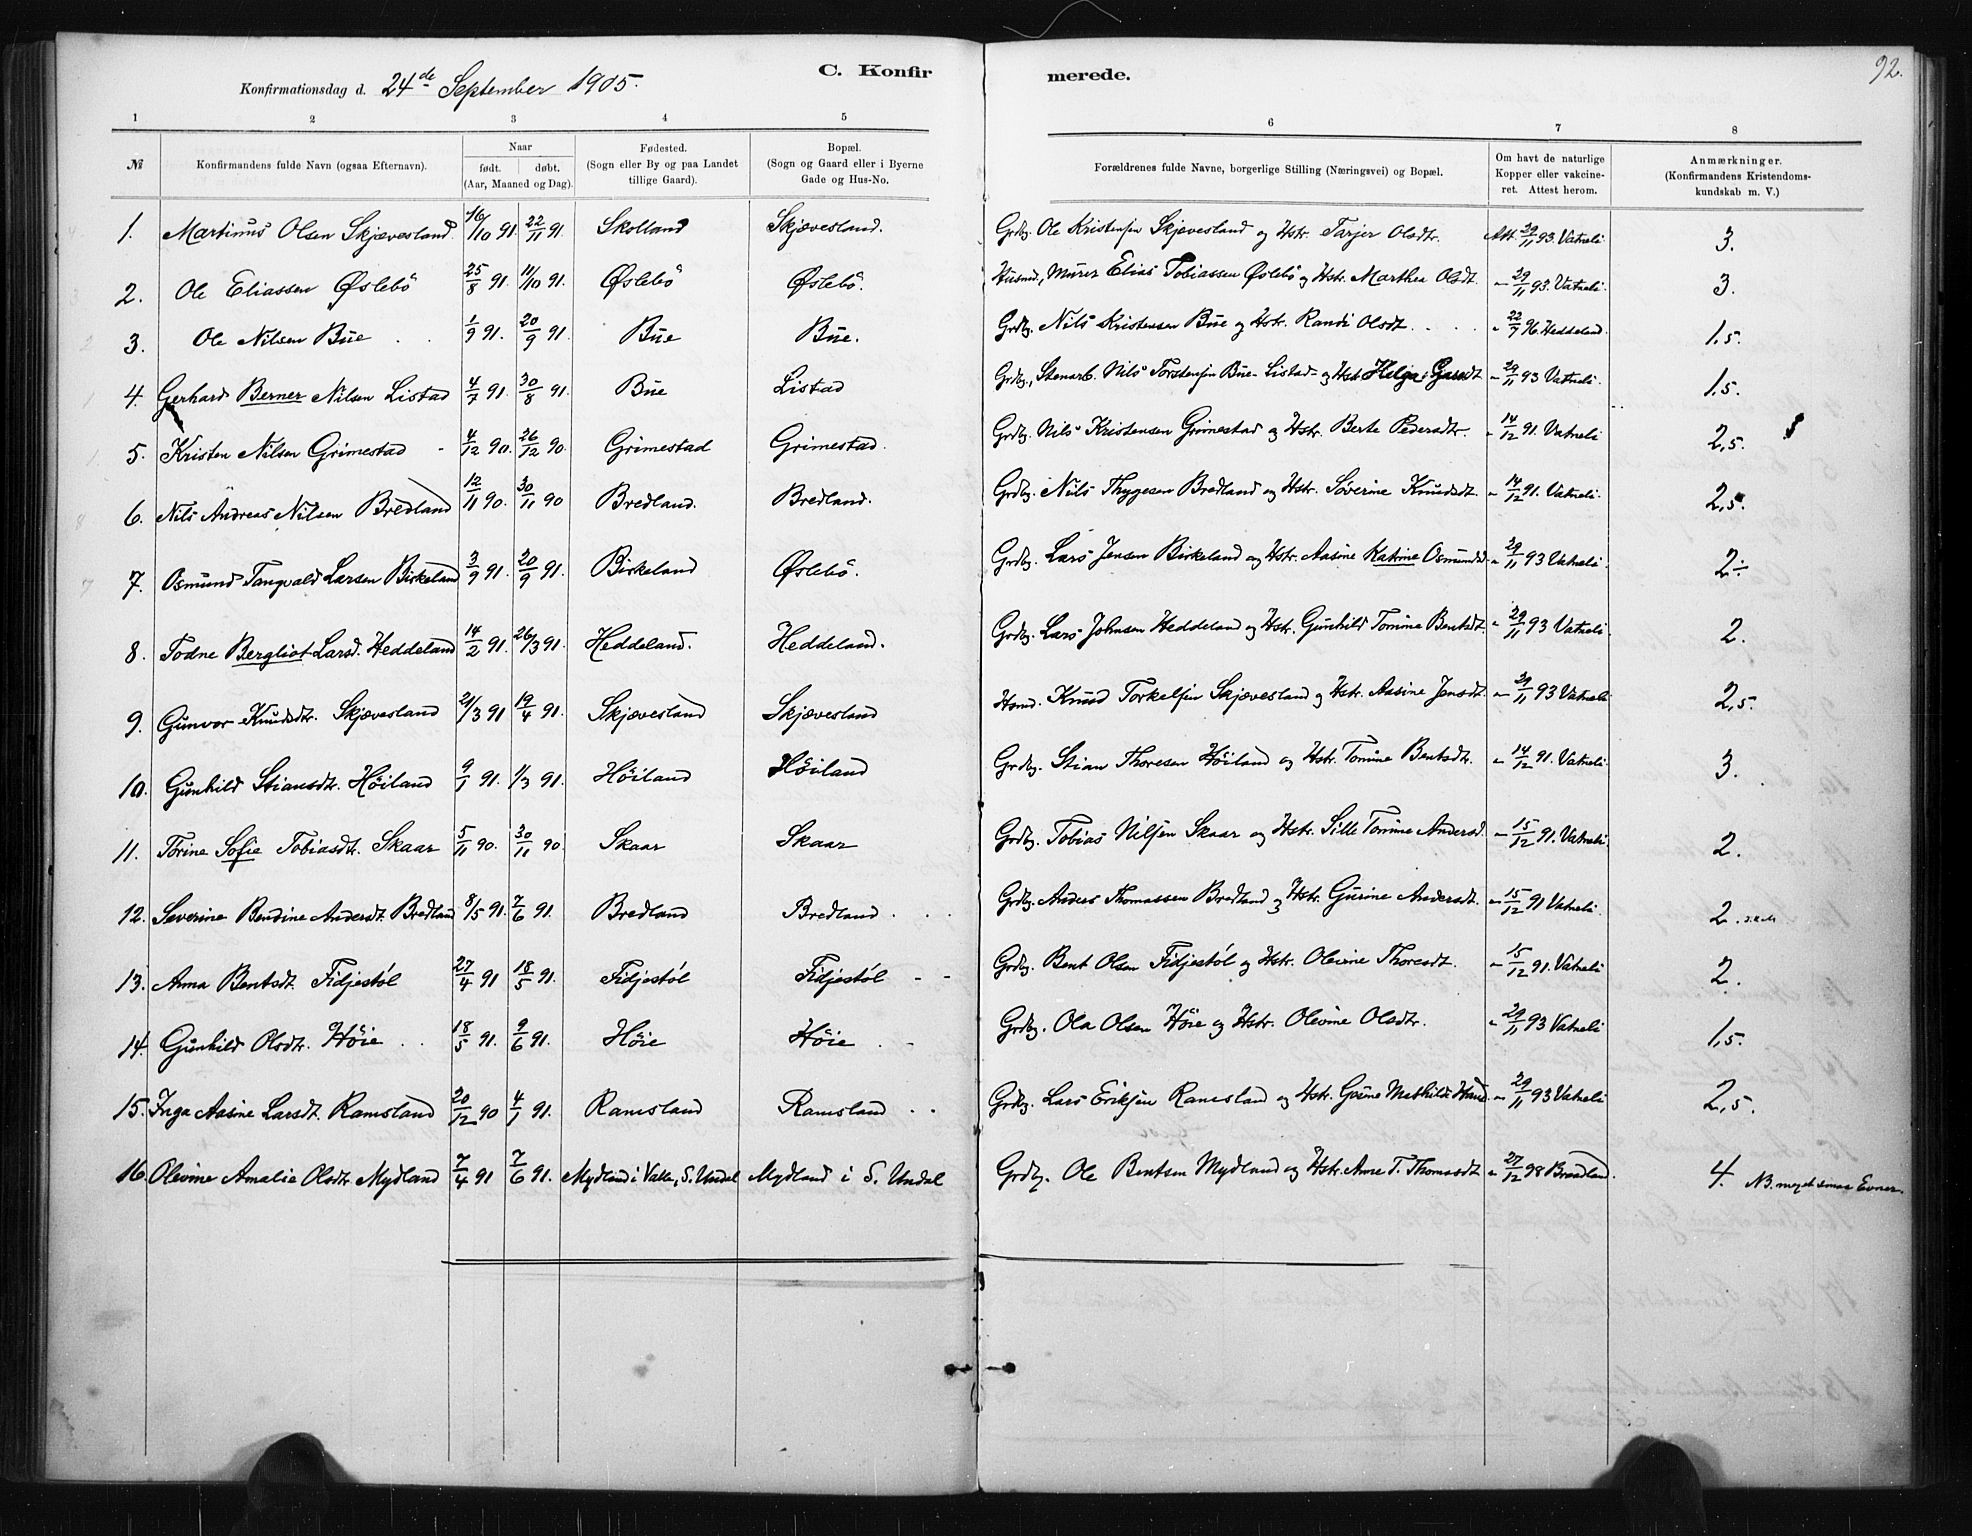 C. Konfirmerede. 92.
Konfirmationsdag d. 24de September 1905.
1 2 3 4 5 6 7 8
№ Konfirmandens fulde Navn (ogsaa Efternavn). Naar født. døbt. (Aar, Maaned og Dag). Fødested. (Sogn eller By og paa Landet tillige Gaard). Bopæl. (Sogn og Gaard eller i Byerne Gade og Hus-No. Forældrenes fulde Navne, borgerlige Stilling (Næringsvei) og Bopæl. Om havt de naturlige Kopper eller vakcineret. Attest herom. Anmærkninger. (Konfirmandens Kristendomskundskab m. V.)
1. Martinus Olsen Skjævesland 16/10 91. 22/11 91. Skolland Skjævesland. Grdbg. Ole Kristensen Skjævesland og Hstr. Tarjer Olsdtr. Att. 29/11 93. Vatneli 3.
2. Ole Eliassen Øslebö 25/8 91. 11/10 91. Øslebö Øslebö. Husmd, Murer Elias Tobiassen Øslebö og Hstr. Marthea Olsdt. - 29/11 93. Vatneli. 3.
3. Ole Nilsen Bue 1/9 91. 20/9 91. Bue Bue. Grdbg. Nils Kristensen Bue og Hstr. Randi Olsdt. " 22/7 96. Heddeland. 1,5.
4. Gerhard Berner Nilsen Listad 4/7 91. 30/8 91. Bue Listad Grdbg., Stenarb. Nils Torstensen Bue-Listad- og Hstr Helga - 29/11 93 Vatneli. 1,5.
5. Kristen Nilsen Grimestad 4/12 90. 26/12 90. Grimestad Grimestad. Grdbg. Nils Kristensen Grimestad og Hstr. Berte Pedersdtr. " 14/12 91. Vatneli 2,5.
6. Nils Andreas Nilsen Bredland 12/11 90. 30/11 90 Bredland. Bredland. Grdbg. Nils Thygesen Bredland og Hstr. Søverine Knudsdt. " 14/12 91. Vatneli. 2,5.
7. Osmund Tangvald Larsen Birkeland 3/9 91. 20/9 91. Birkeland Øslebö. Grdbg. Lars Jensen Birkeland og Hstr. Aasine Katrine Osmundsd. " 29/11 93 Vatneli. 2÷
8. Todne Bergliot Larsd. Heddeland 14/2 91. 26/3 91. Heddeland. Heddeland. Grdbg. Lars Johnsen Heddeland og Hstr. Gunhild Tomine Bentsdt. " 29/11 93 Vatneli. 2.
9. Gunvor Knudsdtr. Skjævesland 21/3 91 19/4 91. Skjævesland Skjævesland Husmd. Knud Torkelsen Skjævesland og Hstr. Aasine Jensdt. " 29/11 93 Vatneli 2,5.
10. Gunhild Stiansdtr. Höiland 9/1 91. 1/3 91. Höiland Höiland Grdbg. Stian Thoresen Höiland og Hstr. Tomine Bentsdt. " 14/12 91. Vatneli. 3.
11. Torine Sofie Tobiasdtr. Skaar 5/11 90. 30/11 90. Skaar Skaar Grdbg. Tobias Nilsen Skaar og Hstr. Sille Tomine Andersd. - 15/12 91. Vatneli. 2.
12. Severine Bendine Andersdt. Bredland 8/5 91. 7/6 91. Bredland Bredland Grdbg. Anders Thomassen Bredland og Hstr. Gurine Andersdt. - 15/12 91 Vatneli. 2.
13. Anna Bentsdt. Fidjestøl 27/4 91 18/5 91. Fidjestøl Fidjestøl Grdbg. Bent Olsen Fidjestøl og Hstr. Olevine Thoresdt. - 15/12 91. Vatneli 2.
14. Gunhild Olsdtr. Höie 18/5 91. 9/6 91. Höie Höie Grdbg. Ola Olsen Höie og Hstr. Olevine Olsdtr. " 29/11 93 Vatneli 1,5.
15. Inga Aasine Larsdt. Ramsland 20/12 90 4/1 91. Ramsland Ramsland Grdbg. Lars Eriksen Ramsland og Hstr. Gosine Mathilde " 29/11 93 Vatneli 2,5.
16. Olevine Amalie Olsdtr. Mydland 7/4 91 7/6 91. Mydland i Valle, S. Undal Mydland i S. Undal Grdbg. Ole Bentsen Mydland og Hstr. Anne T. Thomasdt. " 27/12 98 Braadland. 4. NB. meget smaa Evner.